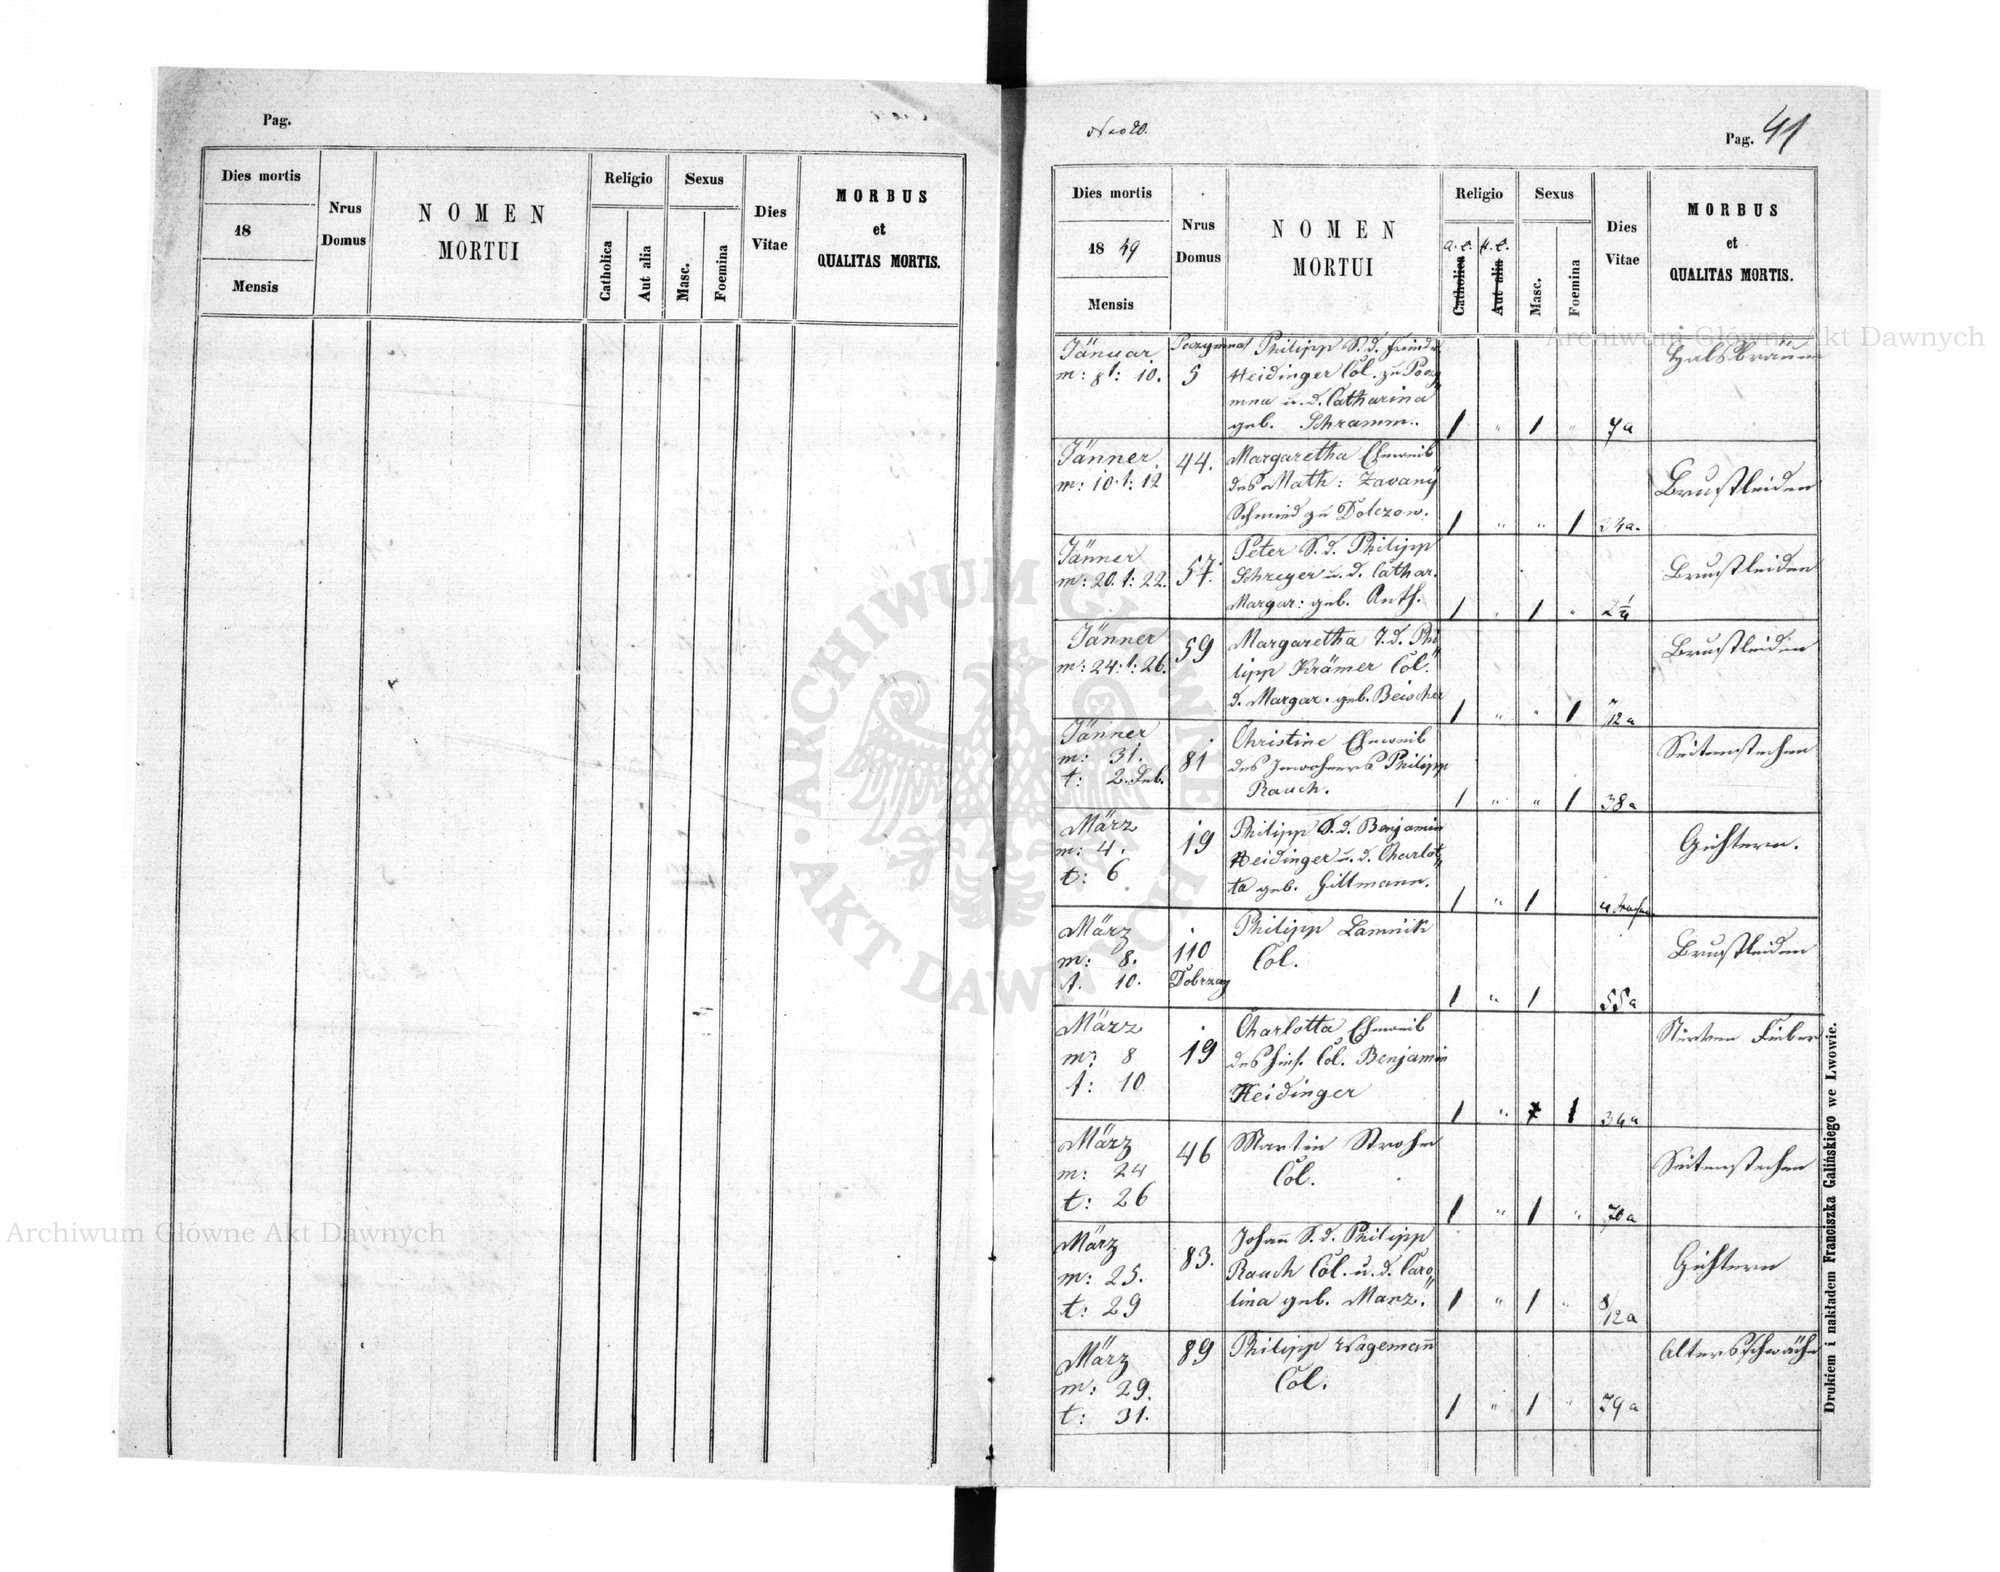 Pag.
Dies mortis
18
Mensis
Nrus
Domus
NOMEN
MORTUI
Religio
Catholica
Aut alia
Sexus
Masc.
Foemina
Dies
Vitae
MORBUS
et
QUALITAS MORTIS.
Nro 20.
Pag. 41
Dies mortis
18 49
Mensis
Nrus
Domus
NOMEN
MORTUI
Religio
a. c. h. c.
Catholica
Aut alia
Sexus
Masc.
Foemina
Dies
Vitae
MORBUS
et
QUALITAS MORTIS.
Januar
m: 8 t: 10.
5
Philipp S. d. Friedr.
Heidinger Col. zu
u. d. Catharina
geb. Schramm.
1 " 1 " 7a
Halsbräune
Jänner
m: 10 t: 12
44.
Margaretha Eheweib
des Math: Zavany
Schmied zu Dolczow.
1 " " 1
Brustleiden
Jänner
m: 20. t: 22.
57.
Peter S. d. Philipp
Schreyer u. d. Cathar.
Margar: geb. Anth.
1 " 1 " 2 1/4
Brustleiden
Jänner
m: 24. t: 26.
59
Margaretha T. d. Phi
lipp Krämer Col.
d. Margar. geb. Beischer
1 " " 1 7/12 a
Brustleiden
Jänner
m: 31.
t: 2. Feb.
81
Christine Eheweib
des Inwohners Philipp
Rauch.
1 " " 1 38a
Seitenstechen
März
m: 4.
t: 6
19
Philipp S. d. Benjamin
Heidinger u. d. Charlot
ta geb. Gillmann.
1 " 1
Gichtern.
März
m: 8.
t. 10.
110
Dobrzan
Philipp Lamnik
Col.
1 " 1 55a
Brustleiden
März
m: 8
t: 10
19
Charlotta Eheweib
des hies. Col. Benjamin
Heidinger
1 " 1 34a
Nerven Fieber
März
m: 24
t: 26
46
Martin Strohm
Col.
1 " 1 " 70a
Seitenstechen
März
m: 25.
t: 29
83.
Johann S. d. Philipp
Rauch Col. u. d. Caro
lina geb. Manz.
1 " 1 " 8/12 a
Gichtern
März
m: 29.
t: 31.
89
Philipp Wagemann
Col.
1 " 1 " 79a
Altersschwäche
Drukiem i nakładem Franciszka Galińskiego we Lwowie.
Archiwum Główne Akt Dawnych
Archiwum Główne Akt Dawnych
ARCHIWUM GŁÓWNE
AKT DAWNYCH